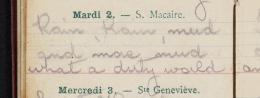 Mardi 2. — S. Macaire.
Rain, Rain, mud
and more mud
what a dirty world
an
Mercredi 3. — Ste Geneviève.